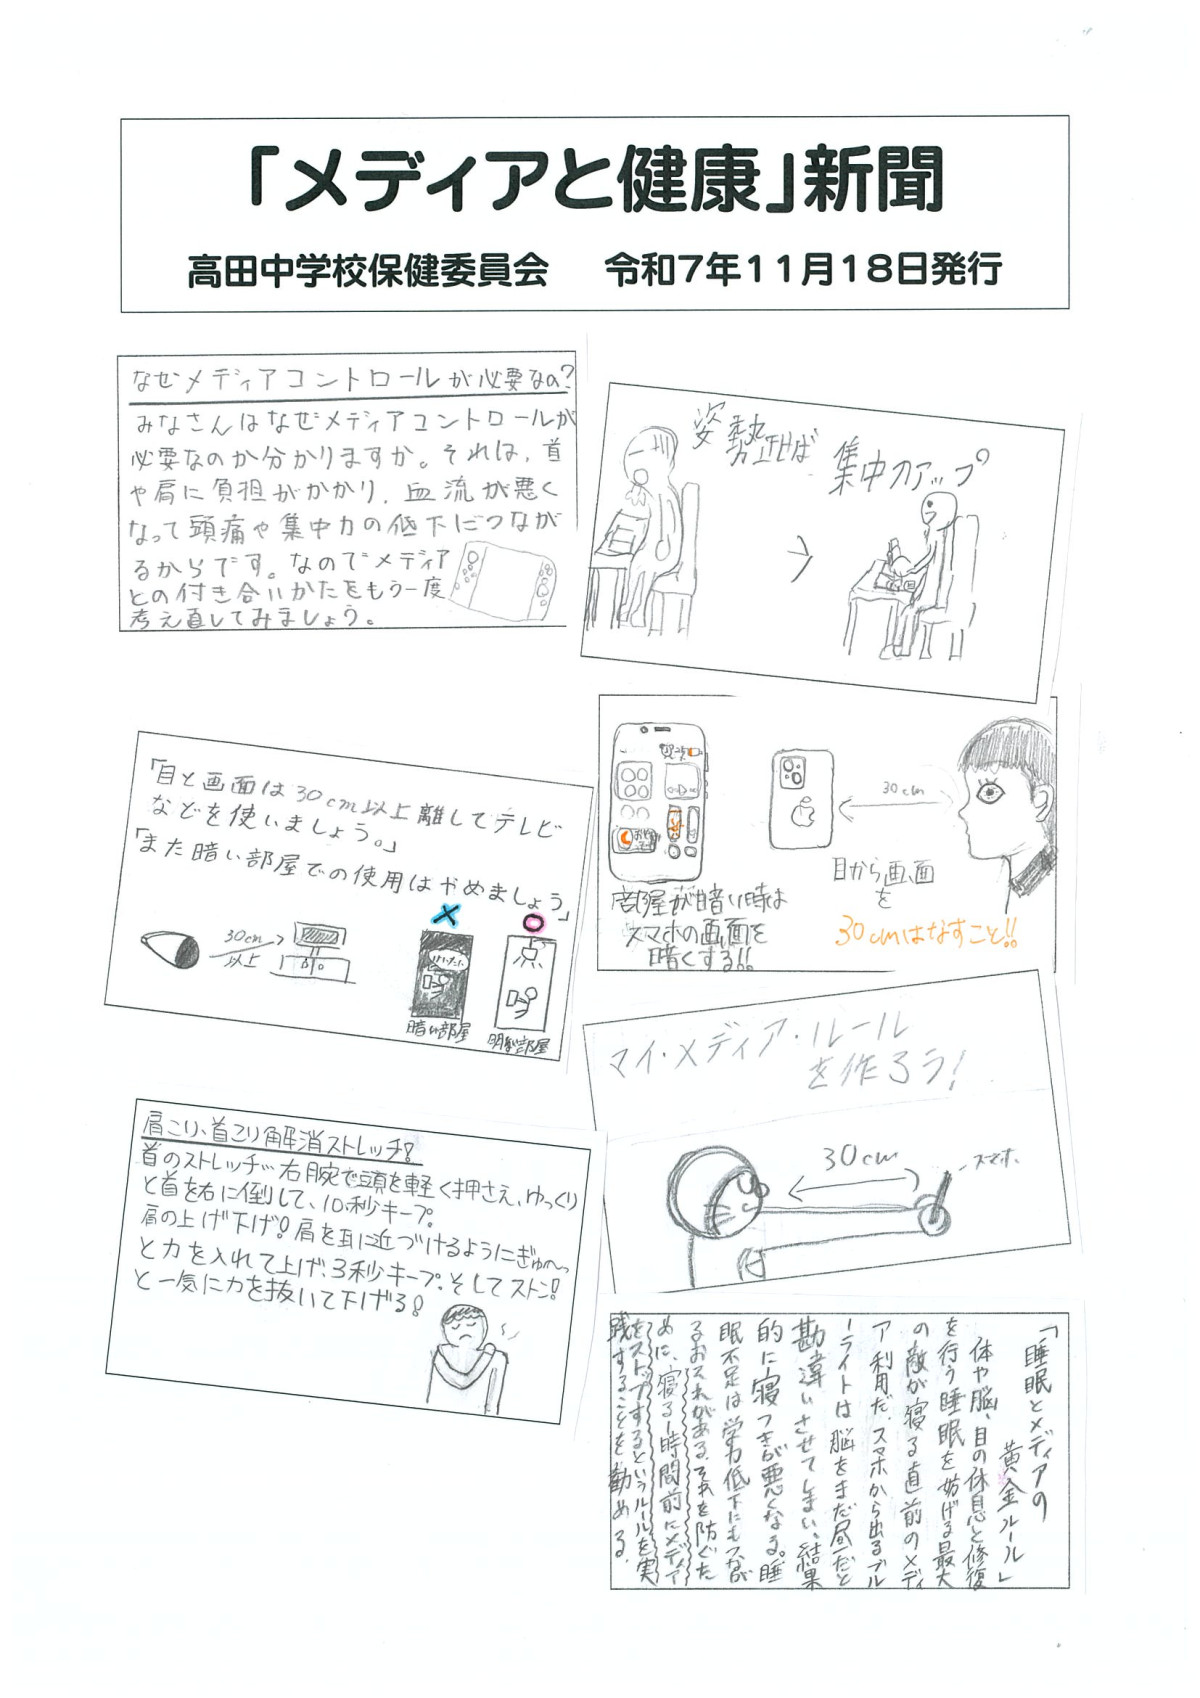 「メディアと健康」新聞
高田中学校保健委員会 令和7年11月18日発行
なぜメディアコントロールが必要なの?
みなさんはなぜメディアコントロールが
必要なのか分かりますか。それは、首
や肩に負担がかかり、血流が悪く
なって頭痛や集中力の低下につなが
るからです。なのでメディア
との付き合いかたをもう一度
考え直してみましょう。
姿勢正せば 集中力アップ
「目と画面は30cm以上離してテレビ
などを使いましょう。」
「また暗い部屋での使用はやめましょう」
30cm
以上
×
○
暗い部屋
明るい部屋
30cm
部屋が暗い時は
スマホの画面を
暗くする!!
目から画面
を
30cmはなすこと!!
マイ・メディア・ルール
を作ろう!
30cm
スマホ
肩こり、首こり解消ストレッチ!
首のストレッチ…右腕で頭を軽く押さえ、ゆっくり
と首を右に倒して、10秒キープ。
肩の上げ下げ!肩を耳に近づけるようにぎゅ〜っ
と力を入れて上げ、3秒キープ。そしてストン!
と一気に力を抜いて下げる!
「睡眠とメディアの
黄金ルール」
体や脳、目の休息と修復
を行う睡眠を妨げる最大
の敵が寝る直前のメディ
ア利用だ。スマホから出るブル
ーライトは脳をまだ昼だと
勘違いさせてしまい、結果
的に寝つきが悪くなる。睡
眠不足は学力低下にもつなが
るおそれがある。それを防ぐた
めに、寝る1時間前にメディア
をストップするというルールを実
践することを勧める。